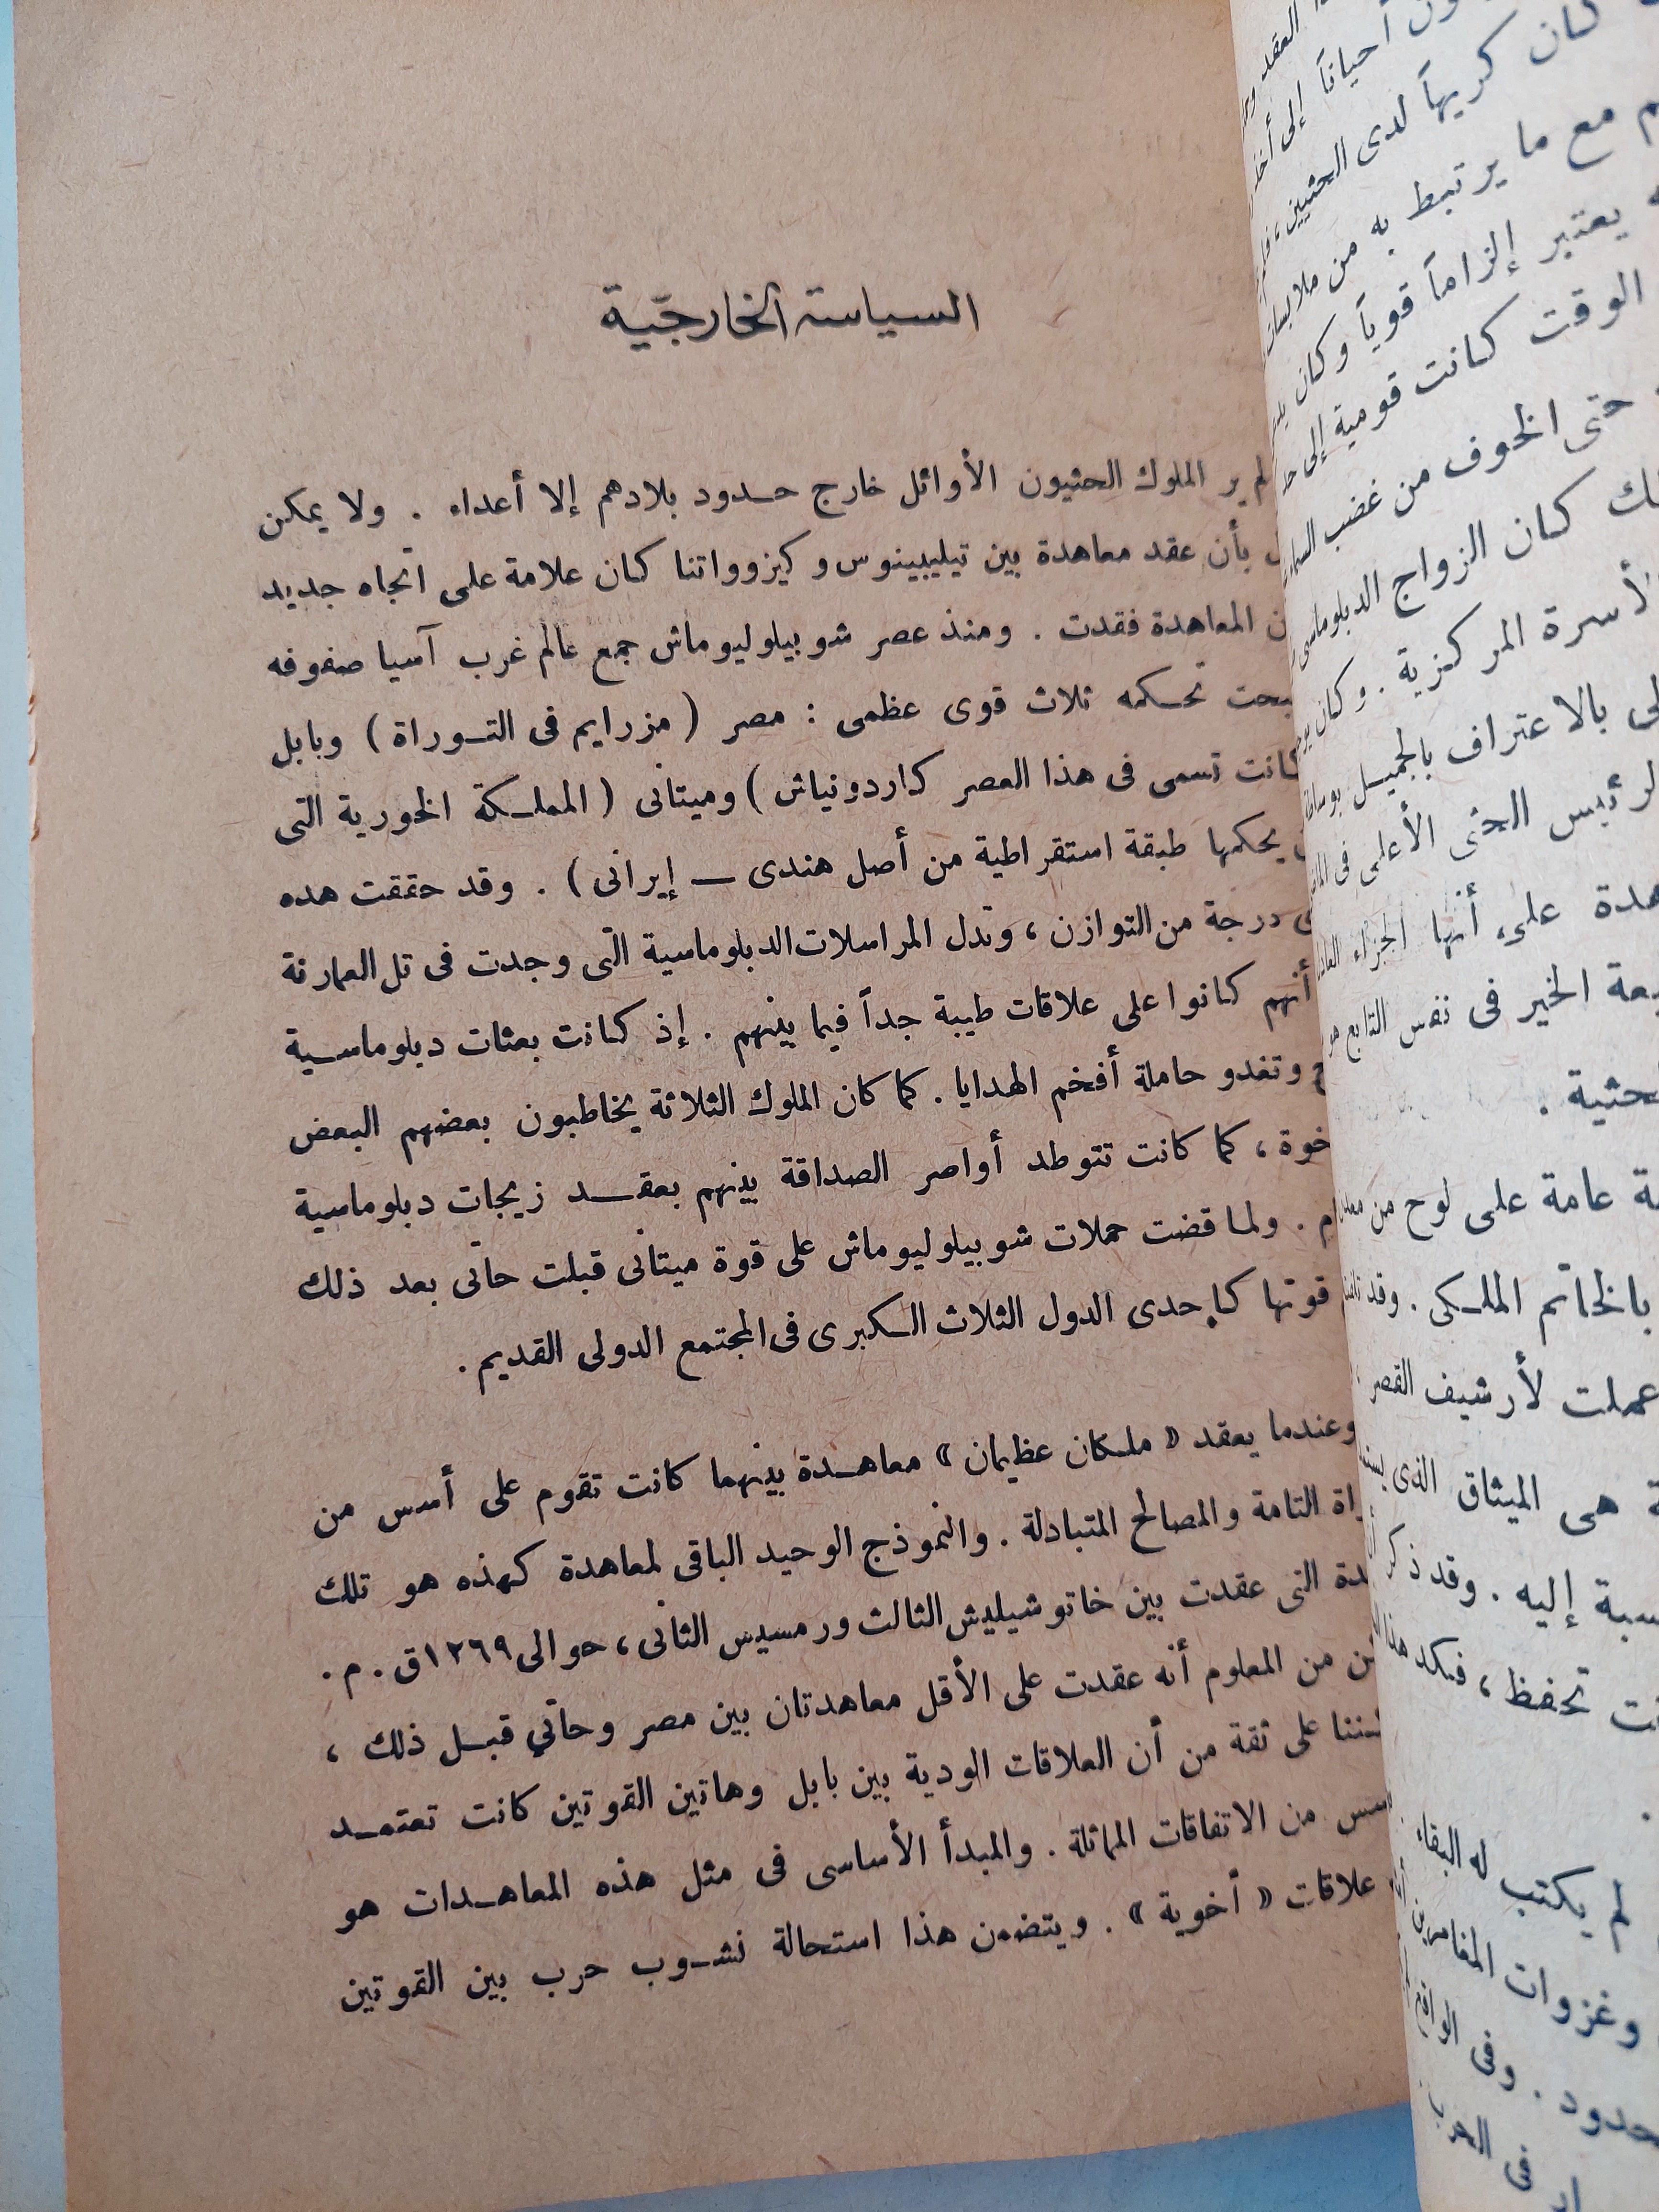 السياسة الخارجية
لم ير الملوك الحثيون الأوائل خارج حدود بلادهم إلا أعداء . ولا يمكن
بأن عقد معاهدة بين تيليبينوس وكيزوواتنا كان علامة على اتجاه جديد
المعاهدة فقدت . ومنذ عصر شوبيلوليوماش جمع عالم غرب آسيا صفوفه
تحكمه ثلاث قوى عظمى : مصر ( مزرايم فى التوراة ) وبابل
كانت تسمى فى هذا العصر كاردونياش ) وميتانى ( المملكة الخورية التى
يحكمها طبقة استقراطية من أصل هندى — إيرانى ) . وقد حققت هده
درجة من التوازن ، وتدل المراسلات الدبلوماسية التى وجدت فى تل العمارنة
أنهم كانوا على علاقات طيبة جداً فيما بينهم . إذ كانت بعثات دبلوماسية
وتغدو حاملة أفخم الهدايا . كما كان الملوك الثلاثة يخاطبون بعضهم البعض
خوة ، كما كانت تتوطد أواصر الصداقة بينهم بعقد زيجات دبلوماسية
. ولما قضت حملات شوبيلوليوماش على قوة ميتانى قبلت حاتى بعد ذلك
قوتها كإحدى الدول الثلاث الكبرى فى المجتمع الدولى القديم .
وعندما يعقد « ملكان عظيمان » معاهدة بينهما كانت تقوم على أسس من
التامة والمصالح المتبادلة . والنموذج الوحيد الباقى لمعاهدة كهذه هو تلك
التى عقدت بين خاتوشيليش الثالث ورمسيس الثانى ، حوالى ١٢٦٩ ق . م .
من المعلوم أنه عقدت على الأقل معاهدتان بين مصر وحاتي قبل ذلك ،
على ثقة من أن العلاقات الودية بين بابل وهاتين القوتين كانت تعتمد
من الاتفاقات المماثلة . والمبدأ الأساسى فى مثل هذه المعاهدات هو
علاقات « أخوية » . ويتضمن هذا استحالة نشوب حرب بين القوتين
أحياناً إلى
كان كريهاً لدى الحثيين ،
مع ما يرتبط به من ملابسات
يعتبر إلزاماً قوياً وكان
الوقت كانت قومية إلى
حتى الخوف من غضب
كان الزواج الدبلوماسى
الأسرة المركزية . وكان
بالاعتراف بالجميل
الحثى الأعلى فى
على أنها الجزاء
الخير فى نفس التابع
عامة على لوح من
بالخاتم الملكى . وقد
عملت لأرشيف القصر
هى الميثاق الذى
إليه . وقد ذكر
تحفظ ،
لم يكتب له البقاء
وغزوات
. وفى
فى الحرب